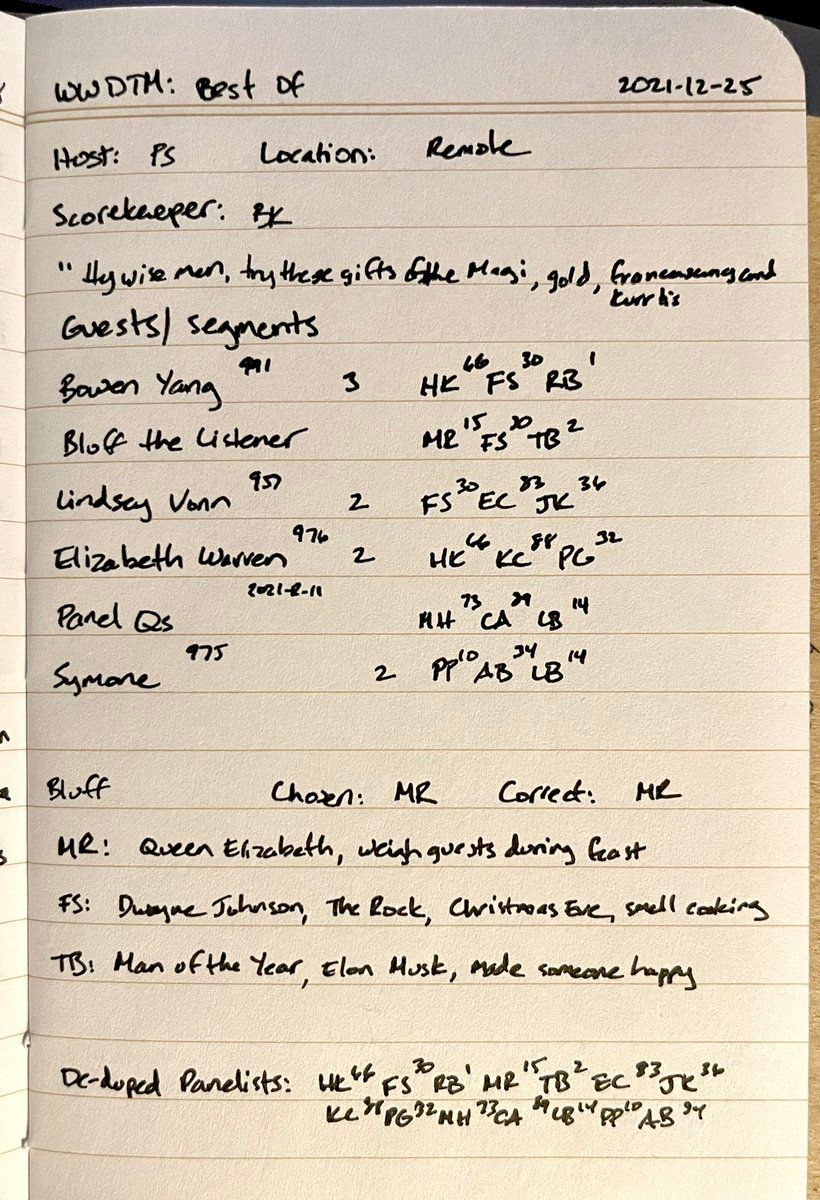 WWDTM: Best Of 2021-12-25
Host: PS Location: Remote
Scorekeeper: BK
"Hey wise men, try these gifts of the Magi, gold, and
Kurtis
Guests/Segments
Bowen Yang 991 3 HK 66 FS 30 RB 1
Bluff the Listener MR 15 FS 30 TB 2
Lindsey Vonn 957 2 FS 30 EC 83 JK 36
Elizabeth Warren 976 2 HK 66 KC 88 PG 32
Panel Qs 2021-12-11 MH 73 CA 89 LB 14
Symone 975 2 PP 10 AB 34 LB 14
Bluff Chosen: MR Correct: MR
MR: Queen Elizabeth, weigh guests during feast
FS: Dwayne Johnson, The Rock, Christmas Eve, smell cooking
TB: Man of the Year, Elon Musk, Made someone happy
De-duped Panelists: HK 66 FS 30 RB 1 MR 15 TB 2 EC 83 JK 36
KC 88 PG 32 MH 73 CA 89 LB 14 PP 10 AB 34